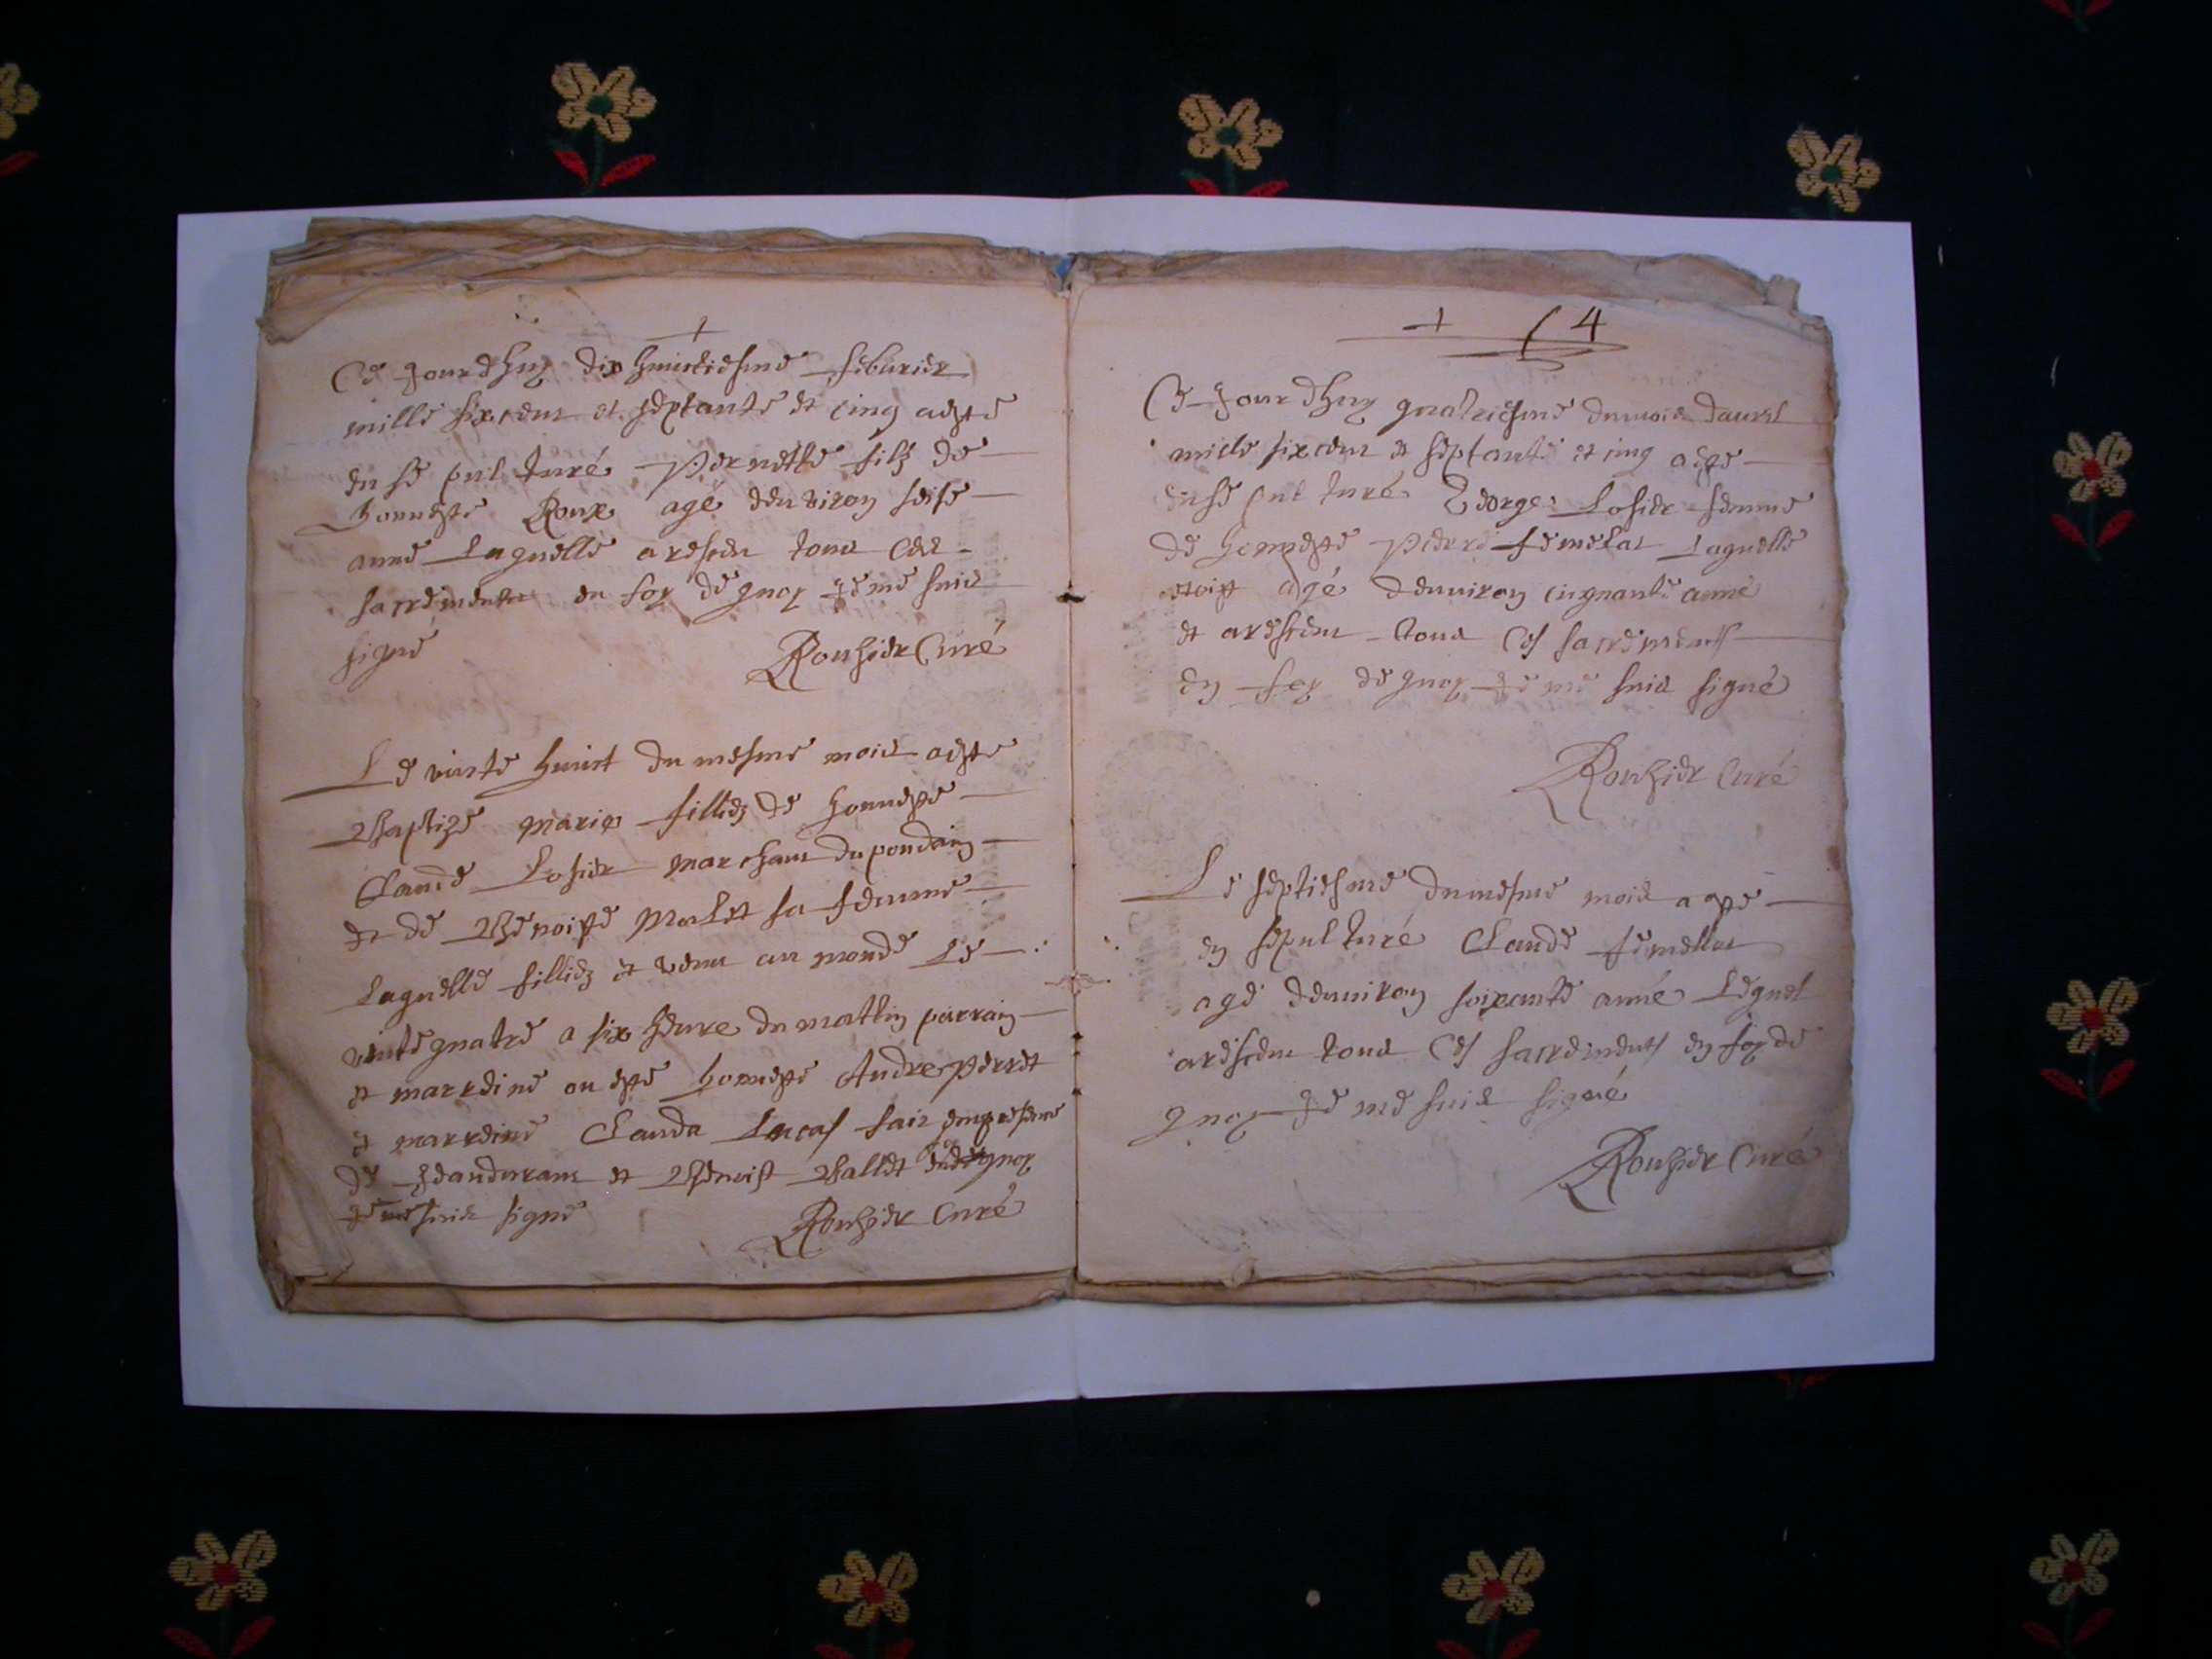 Ce jourdhuy dix huictiesme feburier
mille six cent et septante et cinq aeste
en se pulturé Pernette fille de
honneste Roux agé denviron seise
anne Laquelle a reseu tous ces
sacrements en foy de quoy je me suis
signé
Rouhier Curé
Le vinte huict du mesme mois aeste
Baptize Marie fillie de honneste
Claude Losier marchant du pondain
et de Benoiste Malet sa femme
Laquelle fillie et venu au monde Le
vinte quatre a six heure du mattin parrain
et marreine on este honneste Andre Perret
et marreine Clauda Lucas fait em presence
de et Benoist Ballet foy quoy
je me suis signé
Rouhier Curé
4
Ce jourdhuy quatriesme du mois davril
mille six cent et septante et cinq aeste
en se pulturé George Losier femme
de honneste Pierre femelat Laquelle
etoist agé denviron cinquante anné
et a reseu tous ces sacrements
en foy de quoy je me suis signé
Rouhier Curé
Le septiesme du mesme mois a este
en sepulturé Claude femellat
agé denviron soixante anné Lequel
a reseu tous ces sacrements en foy de
quoy je me suis signé
Rouhier Curé